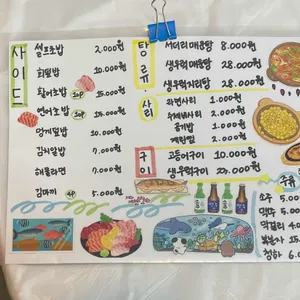 사이드
셀프초밥 2.000원
회덮밥 10.000원
활어초밥 10P 15.000원
연어초밥 10P 15.000원
멍게밀밥 7.000원
김치알밥 7.000원
해물라면 7.000원
김마끼 4P 5.000원
탕류
서더리매운탕 8.000원
생우럭매운탕 28.000원
생우럭지리탕 28.000원
사리
라면사리 1.000원
수제비사리 2.000원
공기밥 1.000원
계란찜 2.000원
구이
고등어구이 10.000원
생우럭구이
주류
소주 5.0
맥주 5.0
막걸리 4.00
청하 6.0